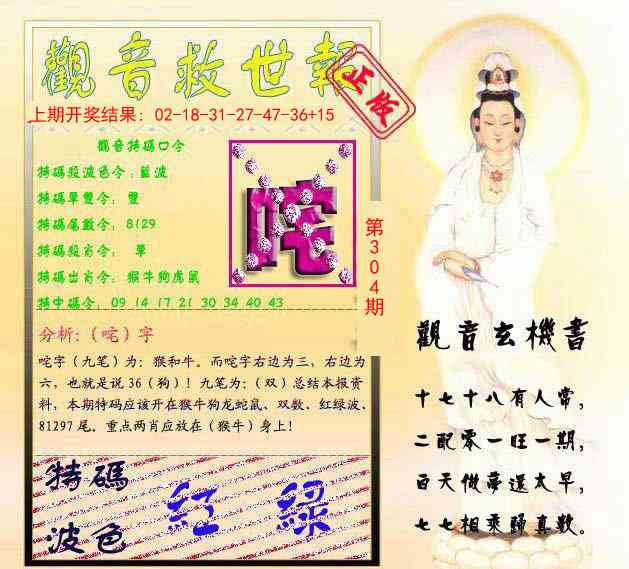 觀音救世報
正版
上期开奖结果：02-18-31-27-47-36+15
觀音特碼口令
特碼段波色令：藍波
特碼單雙令：雙
特碼尾數令：8129
特碼段肖令：單
特碼出肖令：猴牛狗虎鼠
特中碼令：09 14 17 21 30 34 40 43
咤
第304期
分析：（咤）字
咤字（九笔）为：猴和牛。而咤字右边为三，右边为
六，也就是说36（狗）！九笔为：（双）总结本报资
料，本期特码应该开在猴牛狗龙蛇鼠、双数、红绿波、
81297尾。重点两肖应放在（猴牛）身上！
特碼
波色
紅 綠
觀音玄機書
十七十八有人常，
二配零一旺一期，
百天做夢還太早，
七七相乘歸真數。